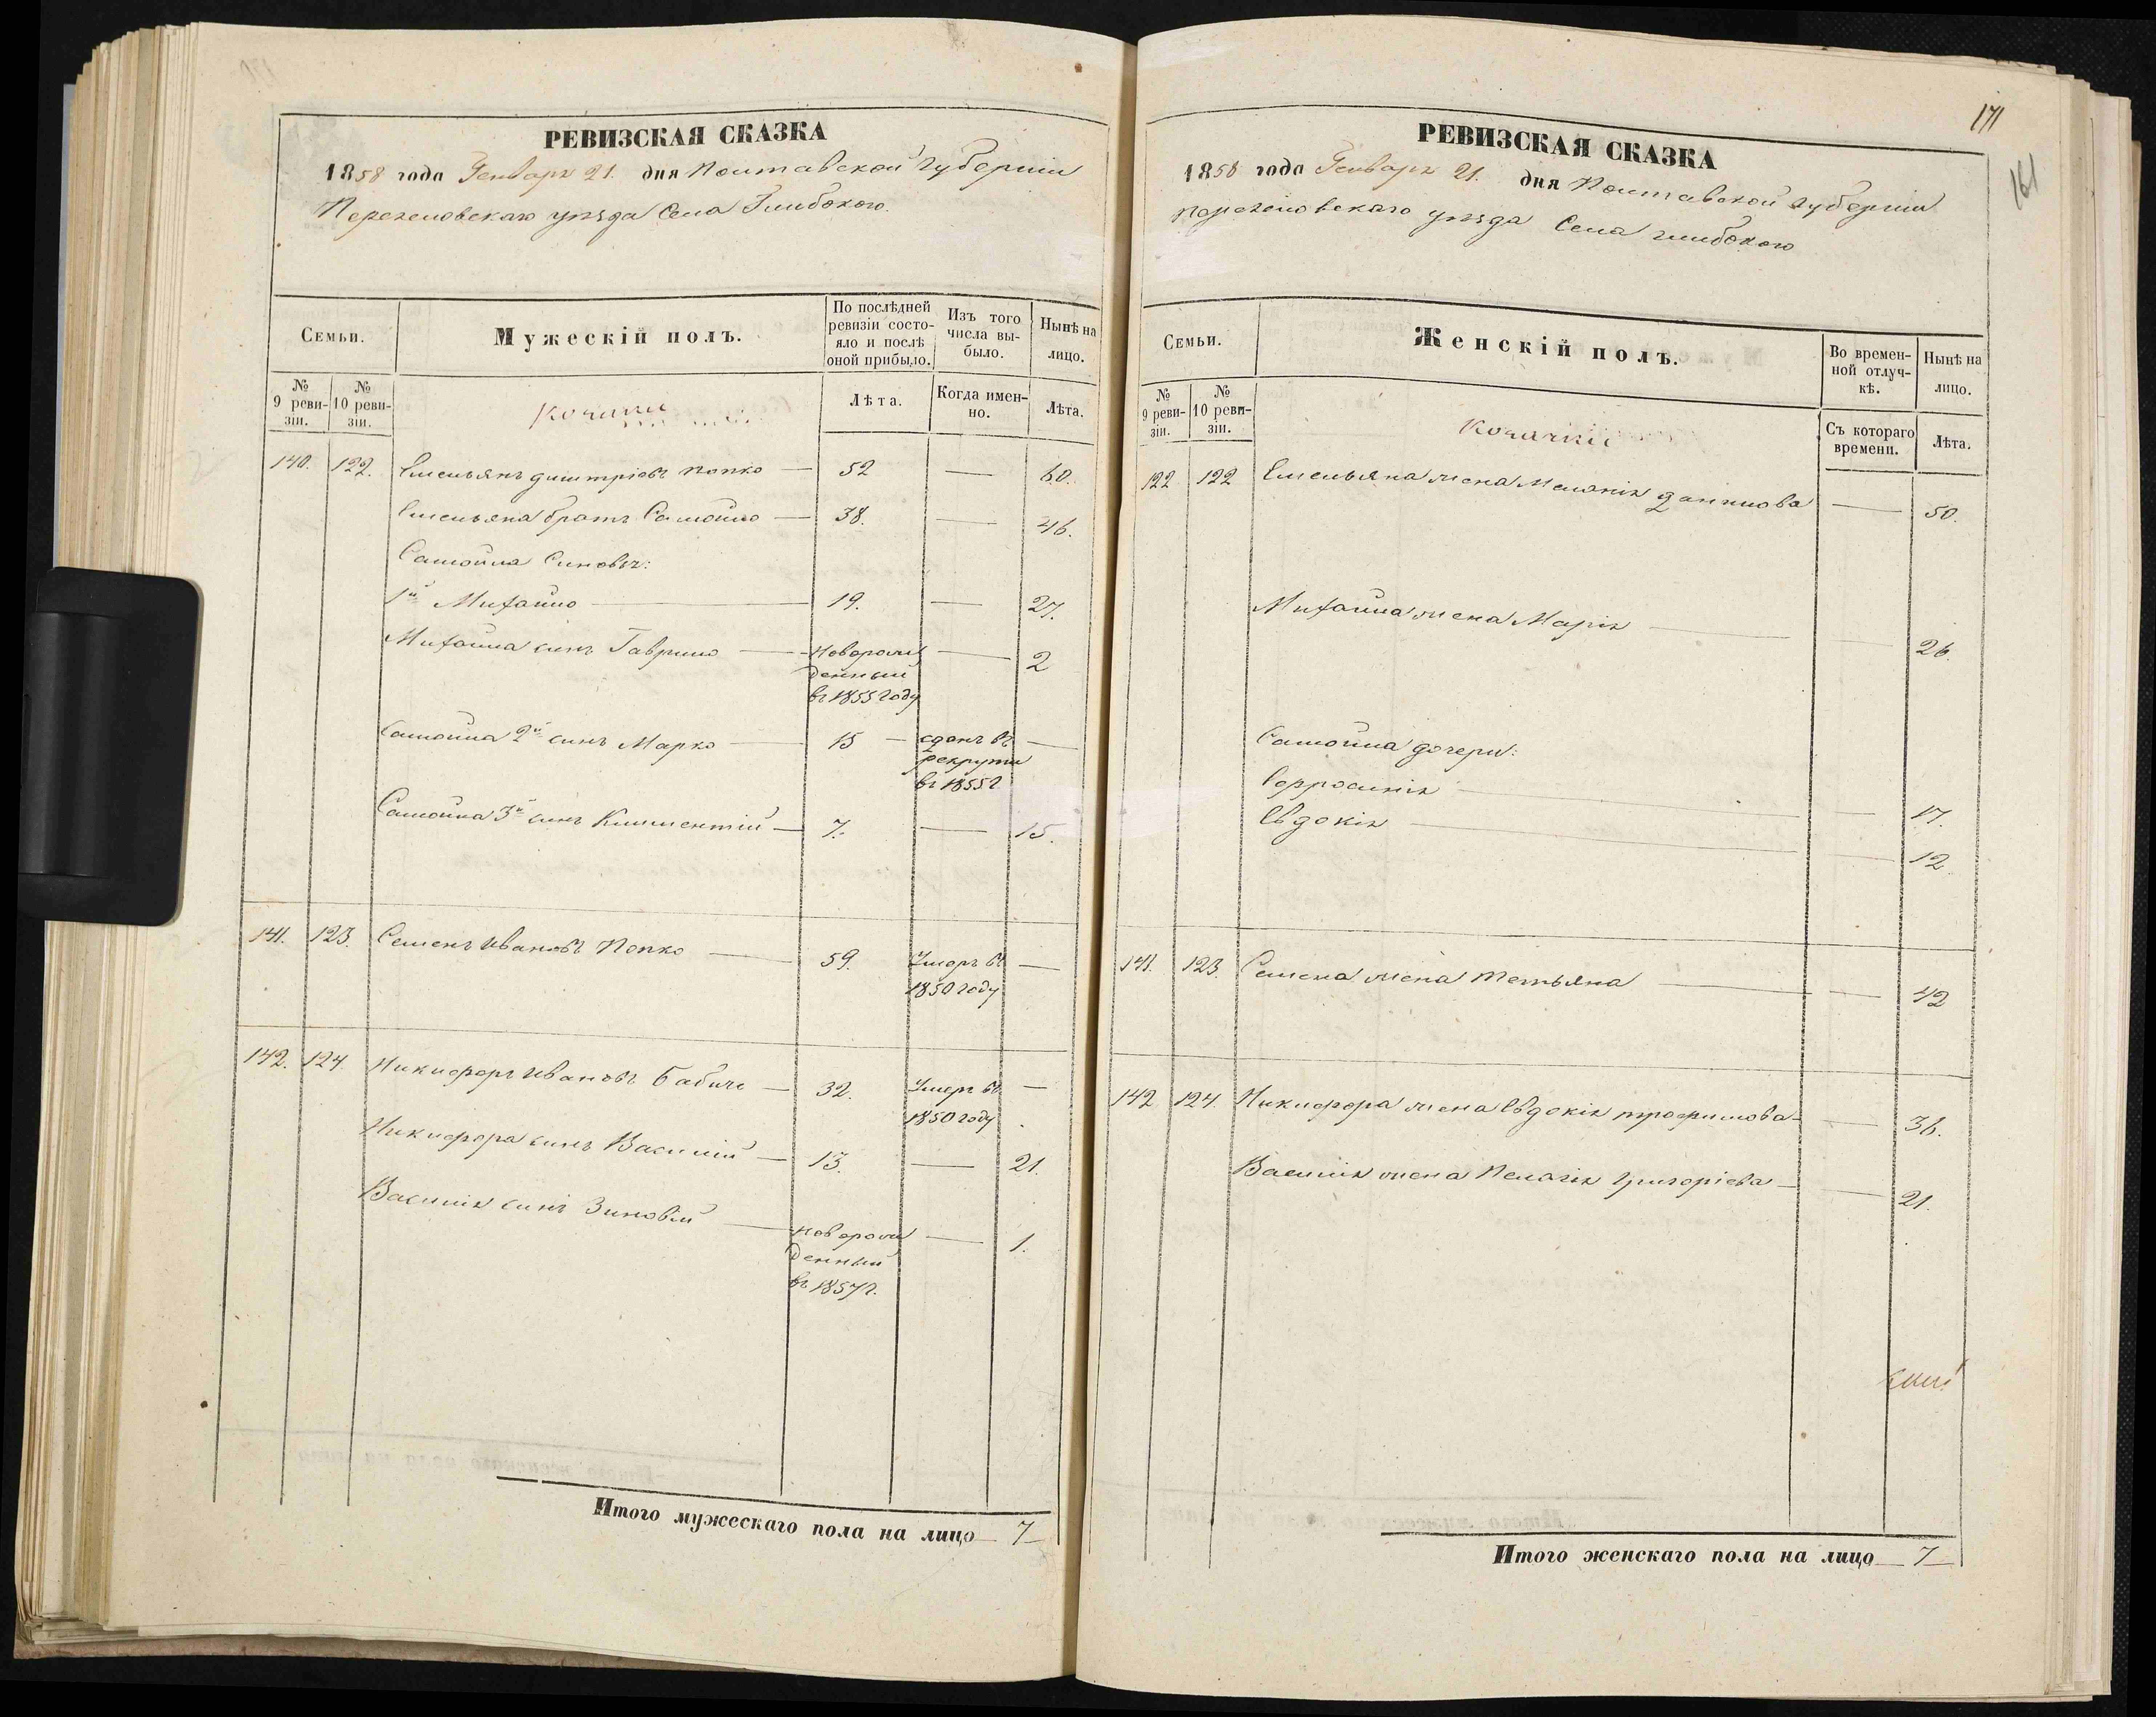 РЕВИЗСКАЯ СКАЗКА
1858 года Генваря 21. дня Полтавской Губерніи
Переяславскаго уѣзда Села Глибокого.
Семьи.
Мужескій полъ.
По послѣдней ревизіи состояло и послѣ оной прибыло.
Изъ того числа выбыло.
Нынѣ на лицо.
№ 9 ревизіи.
№ 10 ревизіи.
Лѣта.
Когда именно.
Лѣта.
Козаки
140. 122. Емельянъ Дмитріевъ Попко — 52 — 60.
Емельяна братъ Самойло — 38. — 46.
Самойла Синовья:
1й Михайло — 19. — 27.
Михайла синъ Гаврило — Новорож — 2
денный
въ 1855 году
Самойла 2й синъ Марко — 15 — сданъ въ —
рекруты
въ 1855 г
Самойла 3й синъ Климентій — 7. — 15.
141. 123. Семенъ Ивановъ Попко — 59. Умеръ въ —
1850 году
142. 124 Никифоръ Ивановъ Бабичъ — 32. Умеръ въ —
1850 году
Никифора синъ Василій — 13. — 21.
Василія синъ Зиновій — Новорож — 1.
денный
въ 1857 г.
Итого мужескаго пола на лицо — 7 —
171
161
РЕВИЗСКАЯ СКАЗКА
1858 года Генваря 21. дня Полтавской Губерніи
Переяславскаго уѣзда Села Глибокого
Семьи.
Женскій полъ.
Во временной отлучкѣ.
Нынѣ на лицо.
№ 9 ревизіи.
№ 10 ревизіи.
Съ котораго времени.
Лѣта.
Козачки
122 122 Емельяна жена Меланія Данилова — 50.
Михайла жена Марія — 26.
Самойла дочери:
Єфросинія — 17.
Євдокія — 12
141. 123. Семена жена Татьяна — 42
142 124. Никифора жена Євдокія Трофимова — 36.
Василія жена Пелагія Григоріева — 21.
Итого женскаго пола на лицо — 7 —